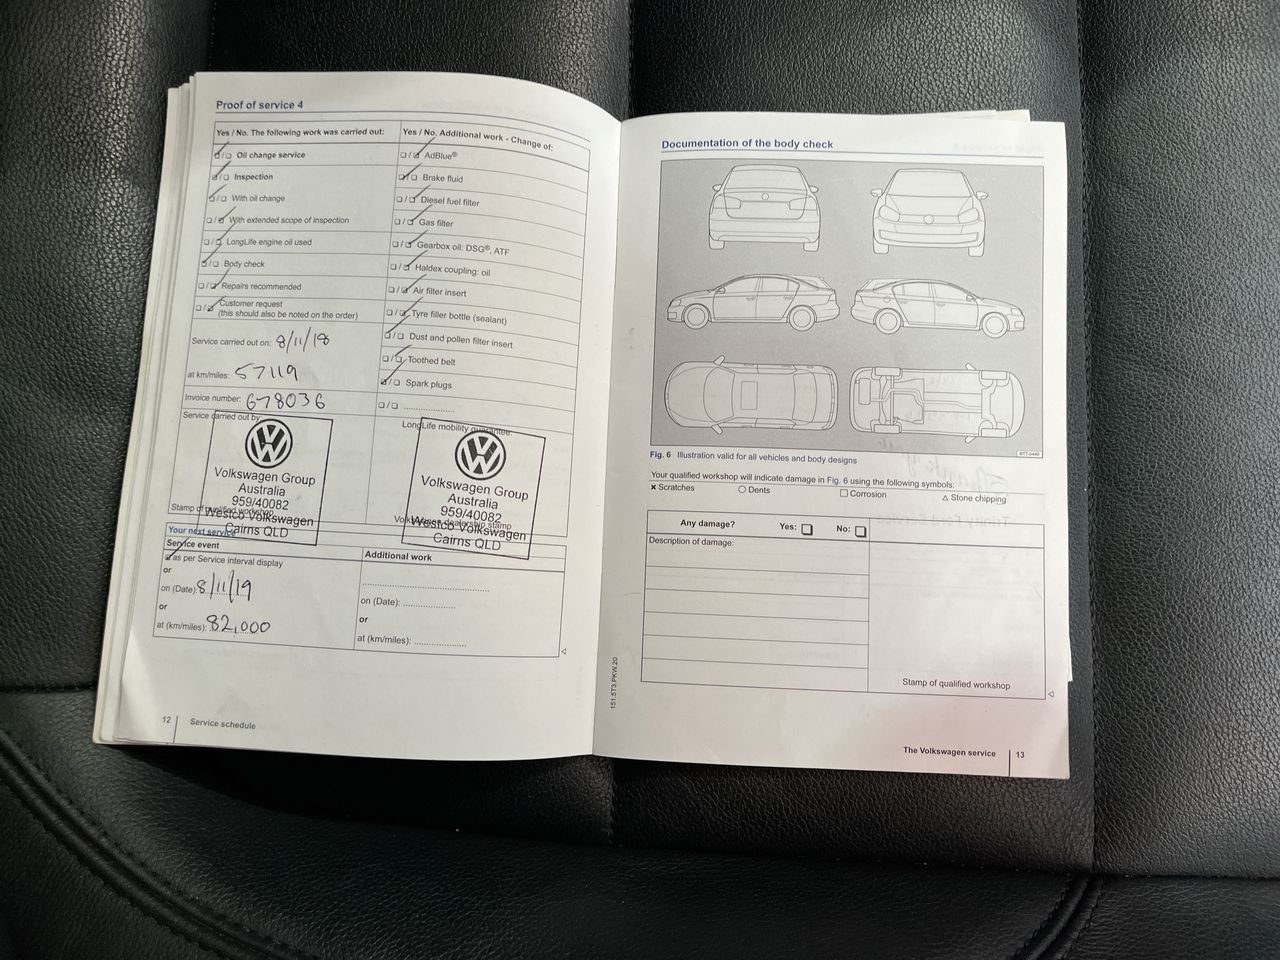 Proof of service 4
Yes / No. The following work was carried out:
Oil change service
Inspection
With oil change
With extended scope of inspection
LongLife engine oil used
Body check
Repairs recommended
Customer request
(this should also be noted on the order)
Service carried out on: 8/11/18
at km/miles: 57119
Invoice number: 678036
Service carried out by:
Volkswagen Group
Australia
959/40082
Westco Volkswagen
Cairns QLD
Stamp of qualified workshop
Yes / No. Additional work - Change of:
AdBlue®
Brake fluid
Diesel fuel filter
Gas filter
Gearbox oil: DSG®, ATF
Haldex coupling: oil
Air filter insert
Tyre filler bottle (sealant)
Dust and pollen filter insert
Toothed belt
Spark plugs
LongLife mobility guarantee:
Volkswagen Group
Australia
959/40082
Westco Volkswagen
Cairns QLD
Volkswagen dealership stamp
Your next service
Service event
as per Service interval display
or
on (Date): 8/11/19
or
at (km/miles): 82,000
Additional work
on (Date):
or
at (km/miles):
12 Service schedule
Documentation of the body check
BTT-0449
Fig. 6 Illustration valid for all vehicles and body designs
Your qualified workshop will indicate damage in Fig. 6 using the following symbols:
× Scratches
○ Dents
□ Corrosion
△ Stone chipping
Any damage? Yes: No:
Description of damage:
Stamp of qualified workshop
151.5T3.PKW.20
The Volkswagen service 13